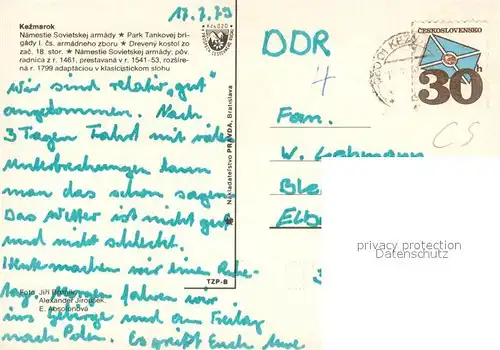 17.7.79
Kežmarok
Námestie Sovietskej armády ★ Park Tankovej bri-
gády I. čs. armádneho zboru ★ Drevený kostol zo
zač. 18. stor. ★ Námestie Sovietskej armády; pôv.
radnica z r. 1461, prestavaná v r. 1541-53, rozšíre-
ná r. 1799 adaptáciou v klasicistickom slohu
Wir sind relativ „gut"
angekommen. Nach
3 Tagen Fahrt mit vielen
Unterbrechungen kann
man das schon sagen.
Das Wetter ist nicht gut
und nicht schlecht.
Heute machen wir einen Ruhe-
tag. Morgen fahren wir
ins Gebirge und am Freitag
nach Polen. Es grüßt Euch
Foto: Jiří
Alexander Jiroušek,
E. Absolonová
Nakladateľstvo PRAVDA, Bratislava
TZP-B
DDR
ČESKOSLOVENSKO
30h
Fam.
W.
Elb
privacy protection
Datenschutz